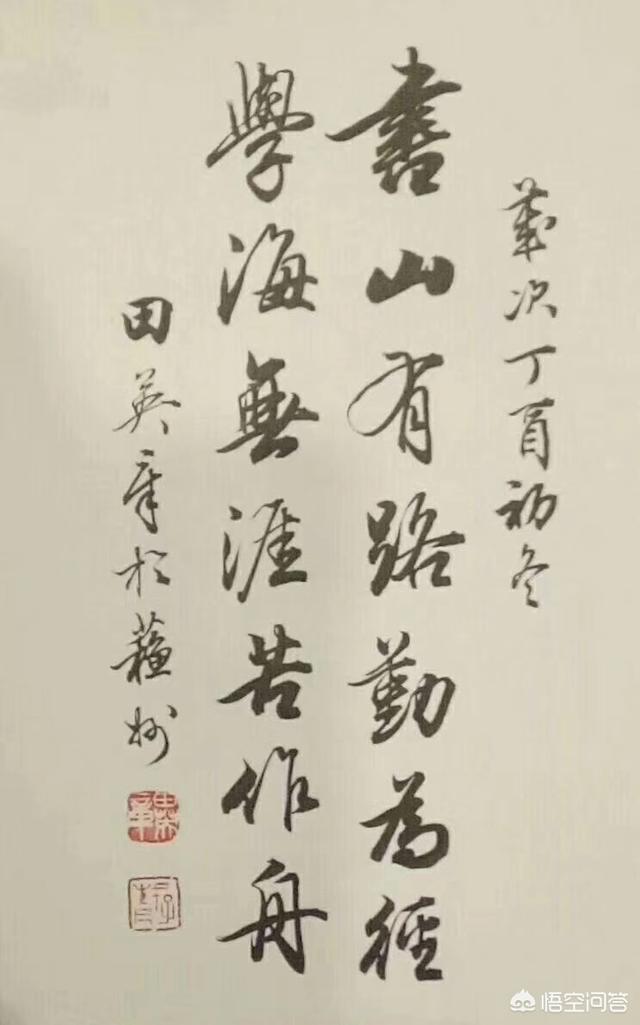 歲次丁酉初冬
書山有路勤為徑
學海無涯苦作舟
田英章於蘇州
悟空问答